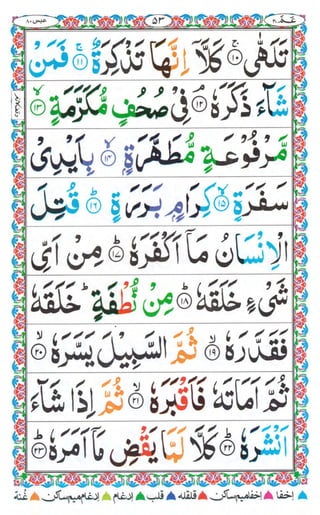 عَمَّ ٣٠ ٥٣ عبس ٨٠
تَلَهّٰى ۚ﴿۱۰﴾ كَلَّاۤ اِنَّهَا تَذْكِرَةٌ ۚ﴿۱۱﴾ فَمَنْ
شَآءَ ذَكَرَهٗ ۘ﴿۱۲﴾ فِىْ صُحُفٍ مُّكَرَّمَةٍ ۙ﴿۱۳﴾
مَّرْفُوْعَةٍ مُّطَهَّرَةٍ ۭۙ﴿۱۴﴾ بِاَيْدِىْ
سَفَرَةٍ ۙ﴿۱۵﴾ كِرَامٍۭ بَرَرَةٍ ؕ﴿۱۶﴾ قُتِلَ
الْاِنْسَانُ مَاۤ اَكْفَرَهٗ ؕ﴿۱۷﴾ مِنْ اَىِّ
شَىْءٍ خَلَقَهٗ ؕ﴿۱۸﴾ مِنْ نُّطْفَةٍ ؕ خَلَقَهٗ
فَقَدَّرَهٗ ۙ﴿۱۹﴾ ثُمَّ السَّبِيْلَ يَسَّرَهٗ ۙ﴿۲۰﴾
ثُمَّ اَمَاتَهٗ فَاَقْبَرَهٗ ۙ﴿۲۱﴾ ثُمَّ اِذَا شَآءَ
اَنْشَرَهٗ ؕ﴿۲۲﴾ كَلَّا لَمَّا يَقْضِ مَاۤ اَمَرَهٗ ؕ﴿۲۳﴾
اِخفا اِخفامیم ساکن قلقله قلب اِدغام اِدغام میم ساکن غُنّه